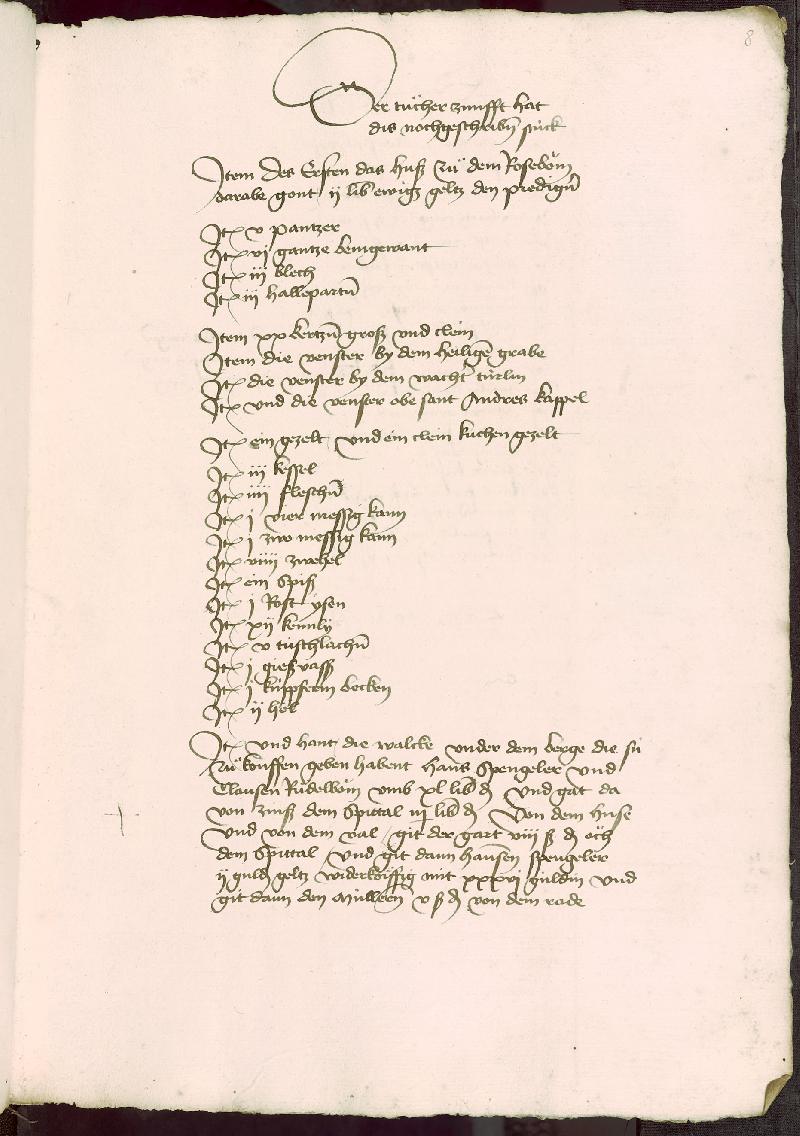 8
Der tücher zunfft hat
dis nochgeschribn̄ stück
Item des Ersten das huß zu dem Rosebom̄
darabe gont ij lib ewigs geltz den predign̄
It v pantzer
It vj gantze beingewant
It iij blech
It iij hallepartn̄
Item xx kertzn̄ groß vnd clein
Item die venster by dem heiligē grabe
It die venster by dem wacht türlin
It vnd die venster obe sant Andres kappel
It ein gezelt vnd ein clein kuchen gezelt
It iij kessel
It iiij fleschn̄
It j vier messig kann
It j zwo messig kann
It viiij zwehel
It ein Spiß
It j Rost ysen
It xij kennly
It v tischlachn̄
It j gießvass
It j küppferin becken
It ij hel
It vnd hant die walcke vnder dem berge die sü
zu kouffen geben habent Hans Spengeler vnd
Clausen Rüdelbom̄ vmb xl lib ₰ vnd gat da
von zinß dem Spittal iij lib ₰ Von dem huse
vnd von dem val git der gart viij ß ₰ öch
dem Spittal vnd git dann hansen spengeler
ij guldē geltz widerköiffig mit xxxvj guldin vnd
git dann den Müllern̄ v ß ₰ von dem rade